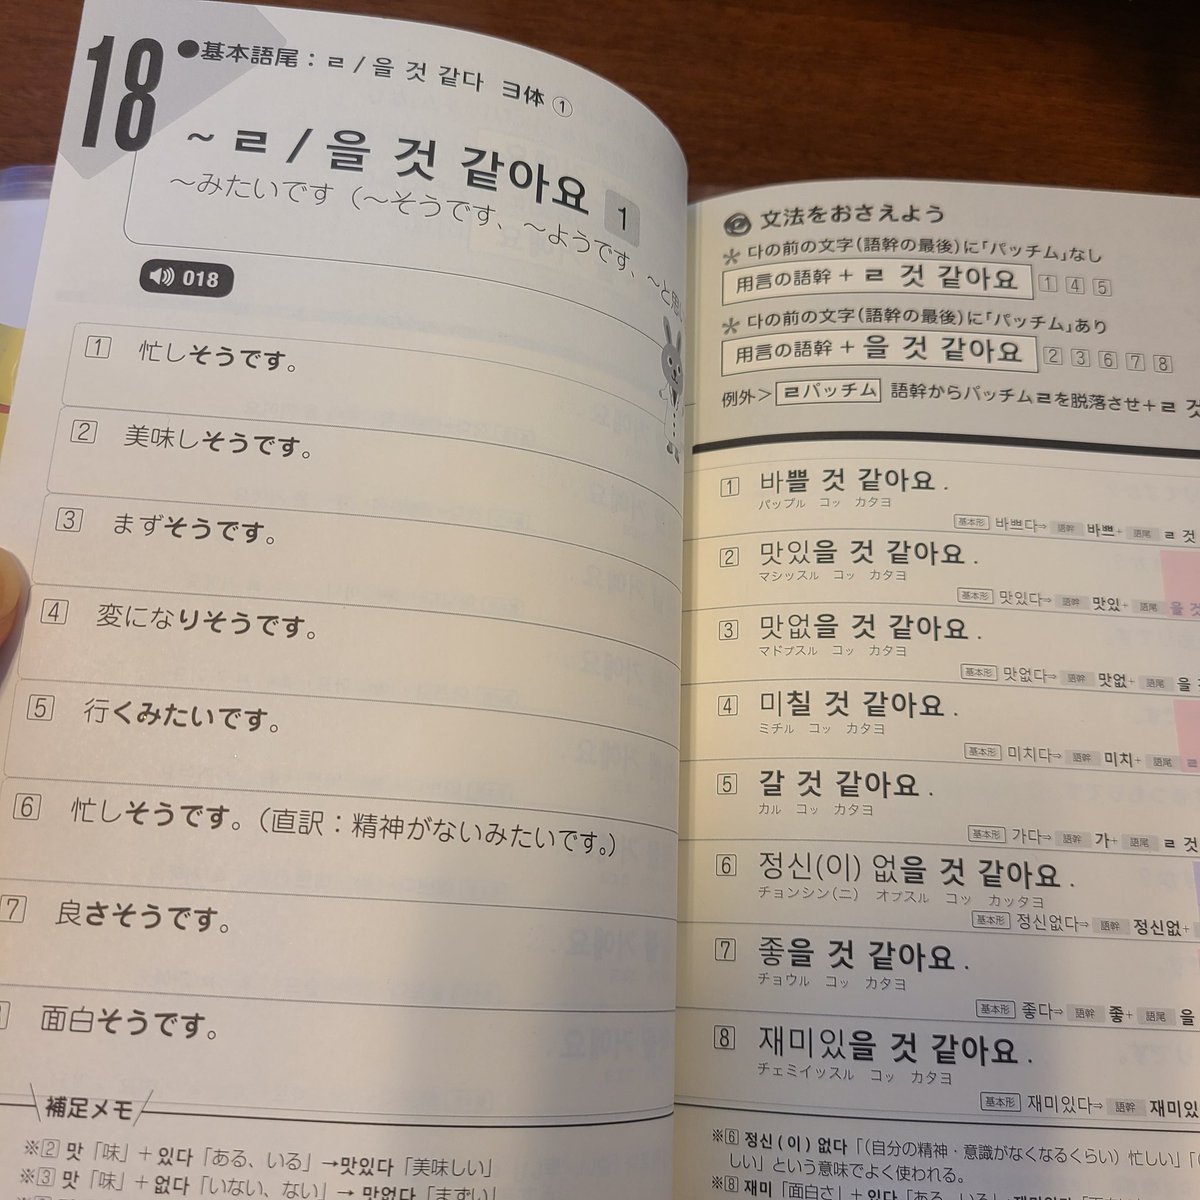 18
●基本語尾：ㄹ/을 것 같다 ヨ体①
~ㄹ/을 것 같아요 1
~みたいです（~そうです、~ようです、~と
018
1 忙しそうです。
2 美味しそうです。
3 まずそうです。
4 変になりそうです。
5 行くみたいです。
6 忙しそうです。（直訳：精神がないみたいです。）
7 良さそうです。
面白そうです。
補足メモ
※2 맛「味」+ 있다「ある、いる」→맛있다「美味しい」
※3 맛「味」+ 없다「いない、ない」→ 맛없다「まずい」
文法をおさえよう
＊다の前の文字(語幹の最後)に「パッチム」なし
用言の語幹 + ㄹ 것 같아요 1 4 5
＊다の前の文字(語幹の最後)に「パッチム」あり
用言の語幹 + 을 것 같아요 2 3 6 7 8
例外＞ ㄹパッチム 語幹からパッチムㄹを脱落させ+ㄹ 것
1 바쁠 것 같아요.
パップル コッ カタヨ
基本形 바쁘다⇒ 語幹 바쁘+ 語尾 ㄹ 것
2 맛있을 것 같아요.
マシッスル コッ カタヨ
基本形 맛있다⇒ 語幹 맛있+ 語尾 을 것
3 맛없을 것 같아요.
マドプスル コッ カタヨ
基本形 맛없다⇒ 語幹 맛없+ 語尾 을
4 미칠 것 같아요.
ミチル コッ カタヨ
基本形 미치다⇒ 語幹 미치+ 語尾 ㄹ
5 갈 것 같아요.
カル コッ カタヨ
基本形 가다⇒ 語幹 가+ 語尾 ㄹ 것
6 정신(이) 없을 것 같아요.
チョンシン(ニ) オプスル コッ カッタヨ
基本形 정신없다⇒ 語幹 정신없+
7 좋을 것 같아요.
チョウル コッ カタヨ
基本形 좋다⇒ 語幹 좋+ 語尾 을
8 재미있을 것 같아요.
チェミイッスル コッ カタヨ
基本形 재미있다⇒ 語幹 재미있
※6 정신(이) 없다「(自分の精神・意識がなくなるくらい) 忙しい」「(
しい」という意味でよく使われる。
※8 재미「面白さ」+ 있다「ある、いる」→